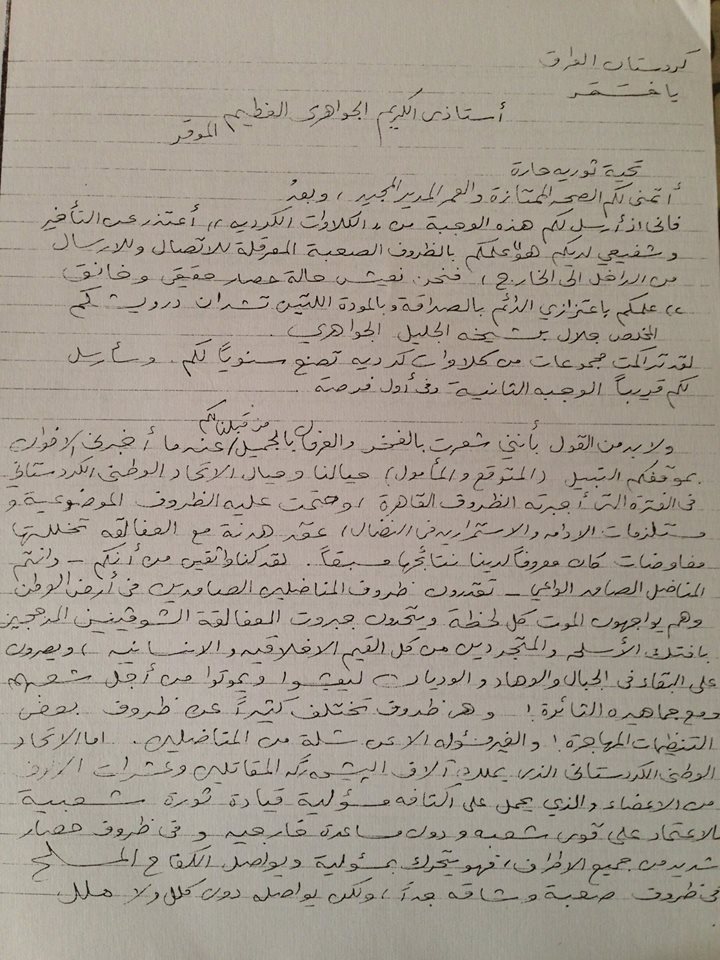 كردستان العراق
ياخسَمَر
أستاذي الكريم الجواهري العظيم
الموقر
تحية ثوريه حارة
أتمنى لكم الصحه الممتازة والعمر المديد المجيد ، وبعدُ
فانى اذ أرسل لكم هذه الوجبة من « الكلاوات الكرديه » أعتذر عن التأخير
وشفيعي لديكم هو علمكم بالظروف الصعبة المعرقلة للاتصال وللارسال
من الداخل الى الخارج ، فنحن نعيش حالة حصار حقيقي وخانق
علمكم باعتزازي الدائم بالصداقة وبالمودة اللتين تشدان درويشكم
المخلص جلال بشيخه الجليل الجواهري .
لقد تراكمت مجموعات من كلاوات كرديه تصنع سنوياً لكم . وسأرسل
لكم قريباً الوجبه الثانية وفى أول فرصة .
ولابد من القول بأنني شعرت بالفخر والعرفان بالجميل من قبلنا لكم عندما أخبرنى الاخوان
بموقفكم النبيل (المتوقع والمأمول) حيالنا وحيال الاتحاد الوطنى الكردستاني
فى الفترة التى أجبرته الظروف القاهرة ، وحتمت عليه الظروف الموضوعية و
مستلزمات الادامه والاستمرار فى النضال ، عقد هدنة مع العفالقه تخللتها
مفاوضات كان معروفاً لدينا نتائجها مسبقاً . لقد كنا واثقين من أنكم – وانتم
المناضل الصامد الواعي – تقدرون ظروف المناضلين الصامدين فى أرض الوطن
وهم يواجهون الموت كل لحظة ويتحدون جبروت العفالقة الشوفينين المدججين
بافتك الأسلحه والمتجردين من كل القيم الاخلاقيه والانسانيه ، ويصرون
على البقاء فى الجبال والوهاد والوديان ليعيشوا ويموتوا من أجل شعبهم
ومع جماهيره الثائرة ! وهى ظروف تختلف كثيراً عن ظروف بعض
التنظيمات المهاجرة ! والغير مسؤوله الا عن شلة من المناضلين . اما الاتحاد
الوطنى الكردستانى الذى يملك آلاف الپيشمه رگه المقاتلين وعشرات الالوف
من الاعضاء والذي يحمل على اكتافه مسؤلية قيادة ثورة شعبية
بالاعتماد على قوى شعبه ودون مساعدة خارجيه و فى ظروف حصار
شديد من جميع الاطراف ، فهو يتحرك بمسؤلية ويواصل الكفاح المسلح
فى ظروف صعبة وشاقه جداً ، ولكن يواصله دون كلل ولا ملل